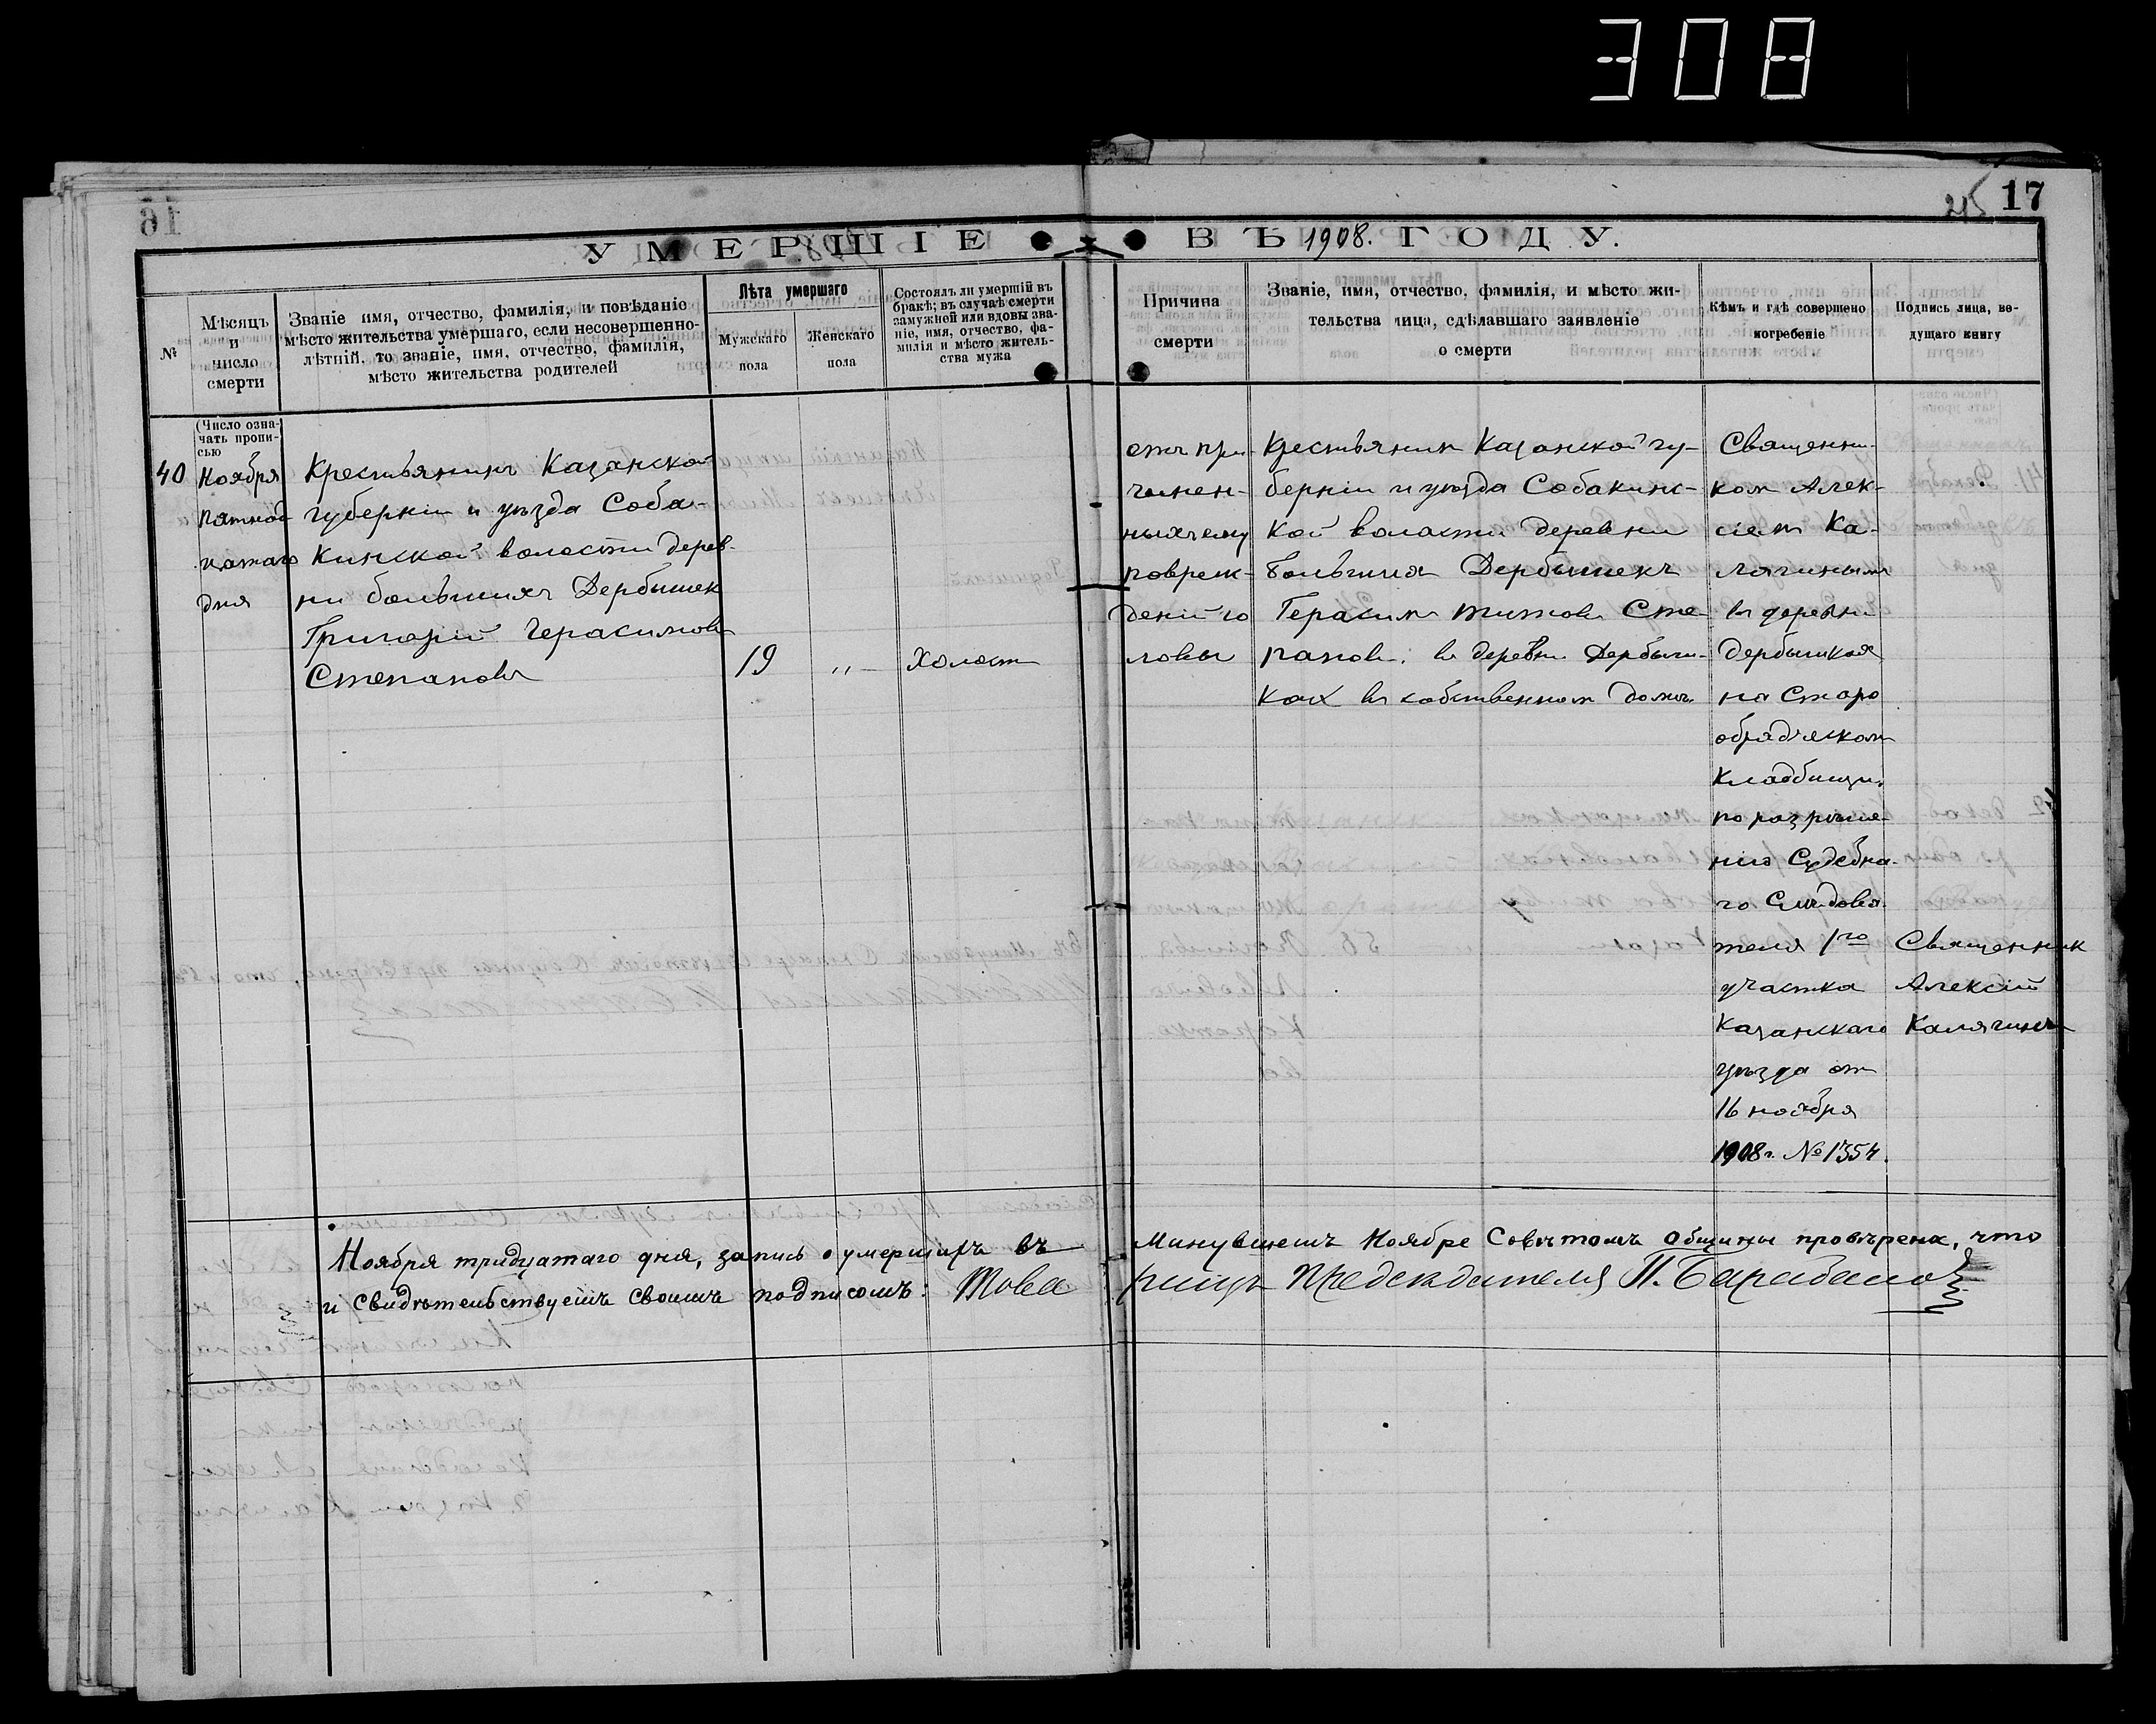 308
16
25
17
УМЕРШІЕ ВЪ 1908. ГОДУ.
№
Мѣсяцъ
и
число
смерти
Званіе имя, отчество, фамилія, и повѣданіе
мѣсто жительства умершаго, если несовершенно-
лѣтній, то званіе, имя, отчество, фамилія,
мѣсто жительства родителей
Лѣта умершаго
Мужскаго
пола
Женскаго
пола
Состоялъ ли умершій въ
бракѣ; въ случаѣ смерти
замужней или вдовы зва-
ніе, имя, отчество, фа-
милія и мѣсто житель-
ства мужа
Причина
смерти
Званіе, имя, отчество, фамилія, и мѣсто жи-
тельства лица, сдѣлавшаго заявленіе
о смерти
Кѣмъ и гдѣ совершено
погребеніе
Подпись лица, ве-
дущаго книгу
(Число озна-
чать пропи-
сью
40
Ноября
пятнад
цатаго
дня
Крестьянинъ Казанской
губерніи и уѣзда Соба-
кинской волости дерев-
ни большихъ Дербышек
Григорій Герасимовъ
Степановъ
19
"
Холост
отъ при-
чинен-
ныхъ ему
повреж-
деній го
ловы
Крестьянин Казанской гу-
берніи и уѣзда Собакинс-
кой волости деревни
Большия Дербышекъ
Герасим Титов Сте-
панов. въ деревн. Дербыш-
ках въ собственном домѣ.
Священни-
ком Алек-
сіем Ка-
лягиным
въ деревни
Дербышках
на Старо
обрядческом
Кладбищѣ,
по разрѣше-
нію Судебна-
го Слѣдова-
теля 1го
участка
Казанскаго
уѣзда от
16 ноября
1908 г. № 1354.
Священник
Алексій
Калягинъ
Ноября тридцатаго дня, запись о умершихъ въ минувшемъ Ноябре Совѣтомъ общины провѣрена, что
и свидѣтельствуетъ своимъ подписомъ: Товарищъ Председателя П. Барабанов